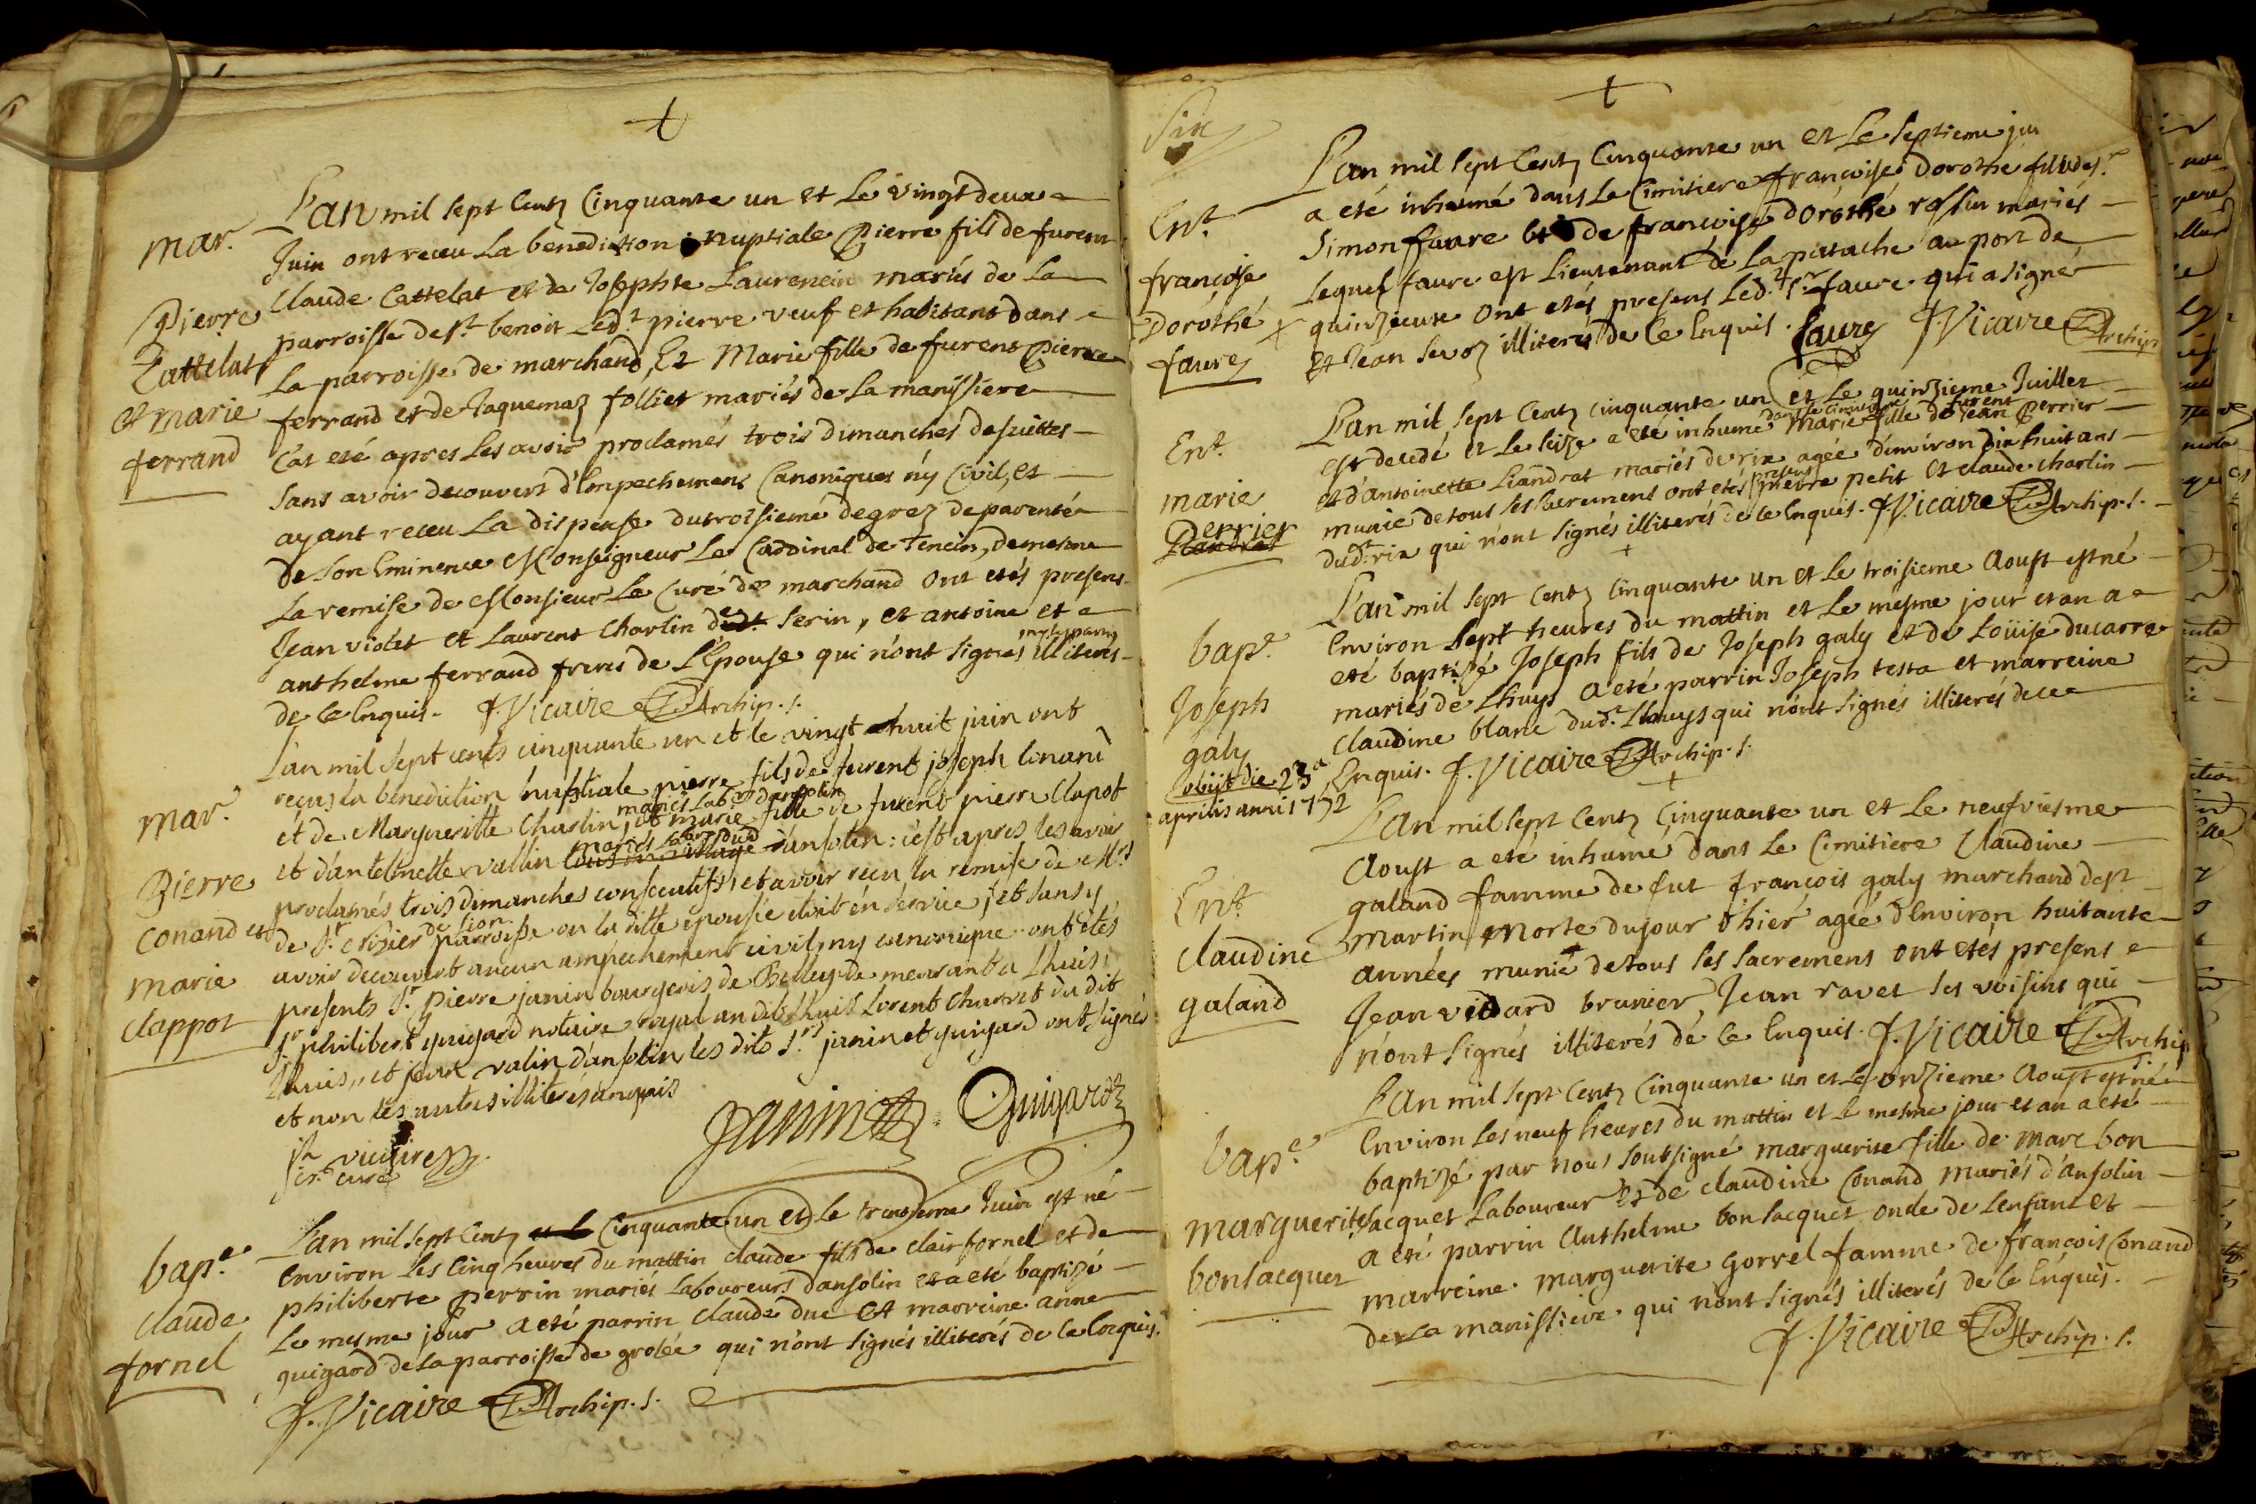 mar.
Pierre
Cattelat
et marie
ferrand
L'an mil sept Centz Cinquante un et Le vingt deux
Juin ont receu La benediction nuptiale Pierre fils de furent
Claude Cattelat et de Josephte Laurencin mariés de La
parroisse de st. benoit Led.t pierre veuf et habitant dans
La parroisse de marchand, Et Marie fille de furent Pierre
ferrand et de Jaquemaz folliet mariés de La manissiere
C'at eté apres Les avoir proclamés trois dimanches de suittes
sans avoir decouvert d'Empechemens Canoniques n'y Civil, et
ayant receu La dispense du troisieme degrez de parenté
de son Eminence Monseigneur Le Cardinal de Tencin, de mesme
La remise de Monsieur Le Curé de marchand ont etés presens
Jean violet et Laurent Charlin de serin, et antoine et
anthelme ferrand freres de L'Epouse qui n'ont signés illiterés
de ce Enquis. J. Vicaire Archip. s.
mar.
Pierre
Conand et
marie
Clappot
L'an mil sept cents cinquante un et le vingt huit juin ont
reçus la benediction nuptiale pierre fils de furent joseph Conand
mariés Lab.rs d'ansolin
et de Margueritte Charlin, et marie fille de furent pierre Clapot
mariés Lab.rs dud.
et d'antelmette vallin d'ansolin : c'est apres les avoir
proclamés trois dimanches consecutifs, et avoir reçu la remise de Mr.
de lion
de st. nizier parroisse ou la ditte epouse etoit en service, et sans y
avoir decouvert aucun ampechement civil, ny canonique ont etés
presents Sr. pierre janin bourgeois de Belley de meurant a Lhuis,
Sr philibert guigard notaire royal au dit Lhuis, Lorent Charvet du dit
Lhuis, et jean valin d'ansolin les dits S.rs janin et guigard ont signés
et non les autres illiterés anquis
Janin Guigard
vicaire
curé
bap.e
claude
fornel
L'an mil sept Centz Cinquante un et Le troisieme Juin est né
Environ Les Cinq heures du mattin claude fils de clair fornel et de
philiberte perrin mariés Laboureurs d'ansolin et a eté baptizé
Le mesme jour a eté parrin Claude duc et marreine anne
guigard de La parroisse de groleé qui n'ont signés illiterés de Ce Enquis.
J. Vicaire Archip. s.
Six
Ent.
françoise
Dorothé
faure
L'an mil sept Centz Cinquante un et Le septieme jui
a eté inhumé dans Le Cimitiere françoise Dorothe fille de s.r
Simon faure et de françoise Dorothé rossin mariés
Lequel faure est Lieutenant de La patache au port de
quinzieuse ont etés presens Led.t s.r faure qui a signé
et Jean sevoz illiterés de Ce Enquis. faure J. Vicaire Archip.
Ent.
marie
Perrier
L'an mil sept Centz Cinquante un et Le quinzieme Juillet
dans Le Cimitiere furent
est decedé et Le seize a eté inhumé Marie fille de Jean Perrier
et d'antoinette Liandrat mariés de rix ageé d'environ dix huit ans
presens
munie de tous Les sacremens ont etés pierre petit et claude charlin
dud.t rix qui n'ont signés illiterés de Ce Enquis. J. Vicaire Archip. s.
bap.e
Joseph
galy
obiit die 23a
aprilis anni 1772
L'an mil sept Centz Cinquante un et Le troisieme Aoust est né
Environ Sept heures du mattin et Le mesme jour et an a
eté baptizé Joseph fils de Joseph galy et de Loüise ducarre
mariés de Lhuys a eté parrin Joseph testa et marreine
Claudine blanc dud.t Lhuys qui n'ont signés illiterés de ce
Enquis. J. Vicaire Archip. s.
Ent.
claudine
galand
L'an mil sept Centz Cinquante un et Le neufviesme
Aoust a eté inhumé dans Le Cimitiere Claudine
galand famme de fut françois galy marchand de st
martin morte du jour d'hier ageé d'Environ huitante
années munie de tous ses sacremens ont etés presens
Jean vidard brunier Jean ravet ses voisins qui
n'ont signés illiterés de Ce Enquis. J. Vicaire Archip
bap.e
marguerite
bonsacquet
L'an mil sept Centz Cinquante un et Le onzieme Aoust est né
Environ Les neuf heures du mattin et Le mesme jour et an a eté
baptizé par nous soubsigné marguerite fille de marc bon
sacquet Laboureur et de claudine Conand mariés d'ansolin
a eté parrin Anthelme bonsacquet oncle de L'enfant et
marreine marguerite gorrel famme de françois Conand
de La manissiere qui n'ont signés illiterés de Ce Enquis.
J. Vicaire Archip. s.